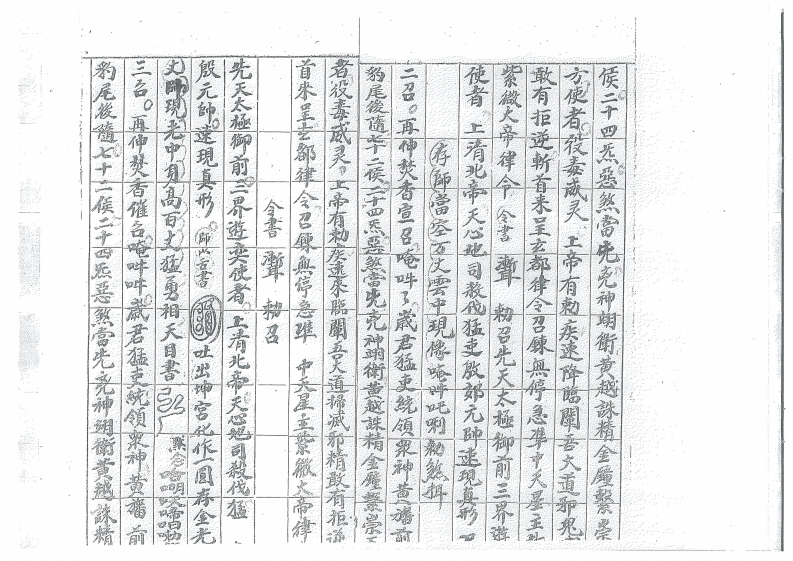 侯二十四炁惡煞當先兇神翊衛黃越誅精金鐘繫崇
方使者役毒威灵 上帝有勅疾速降臨闡吾大道邪鬼
敢有拒逆斬首来呈玄都律令召錬無停急準中天星主
紫微大帝律令 令書 勅召先天太極御前三界遊
使者 上清北帝天心地司殺伐猛吏殷郊元帥速現真形
存師當空万丈雲中現像唵吽吒唎勅煞摂
二召。再伸焚香宣召唵吽々歳君猛吏統領衆神黄旛前
豹尾後隨七十二侯二十四炁惡煞當先兇神翊衛黃越誅精金鐘繫崇
者役毒威灵上帝有勅疾速來臨闡吾大道掃滅邪精敢有拒逆
首來呈玄都律令召錬無停急準 中天星主紫微大帝律
令書 勅召
先天太極御前三界遊奕使者 上清北帝天心地司殺伐猛
殷元帥。速現真形 師以舌書 吐出坤宮化作一圓存金光
丈師現光中身高百丈猛勇相天目書 黙念
三召。再伸焚香催召唵吽吽歳君猛吏統領衆神黄旛 前
豹尾後隨七十二侯二十四炁惡煞當先兇神翊衛黃越誅精